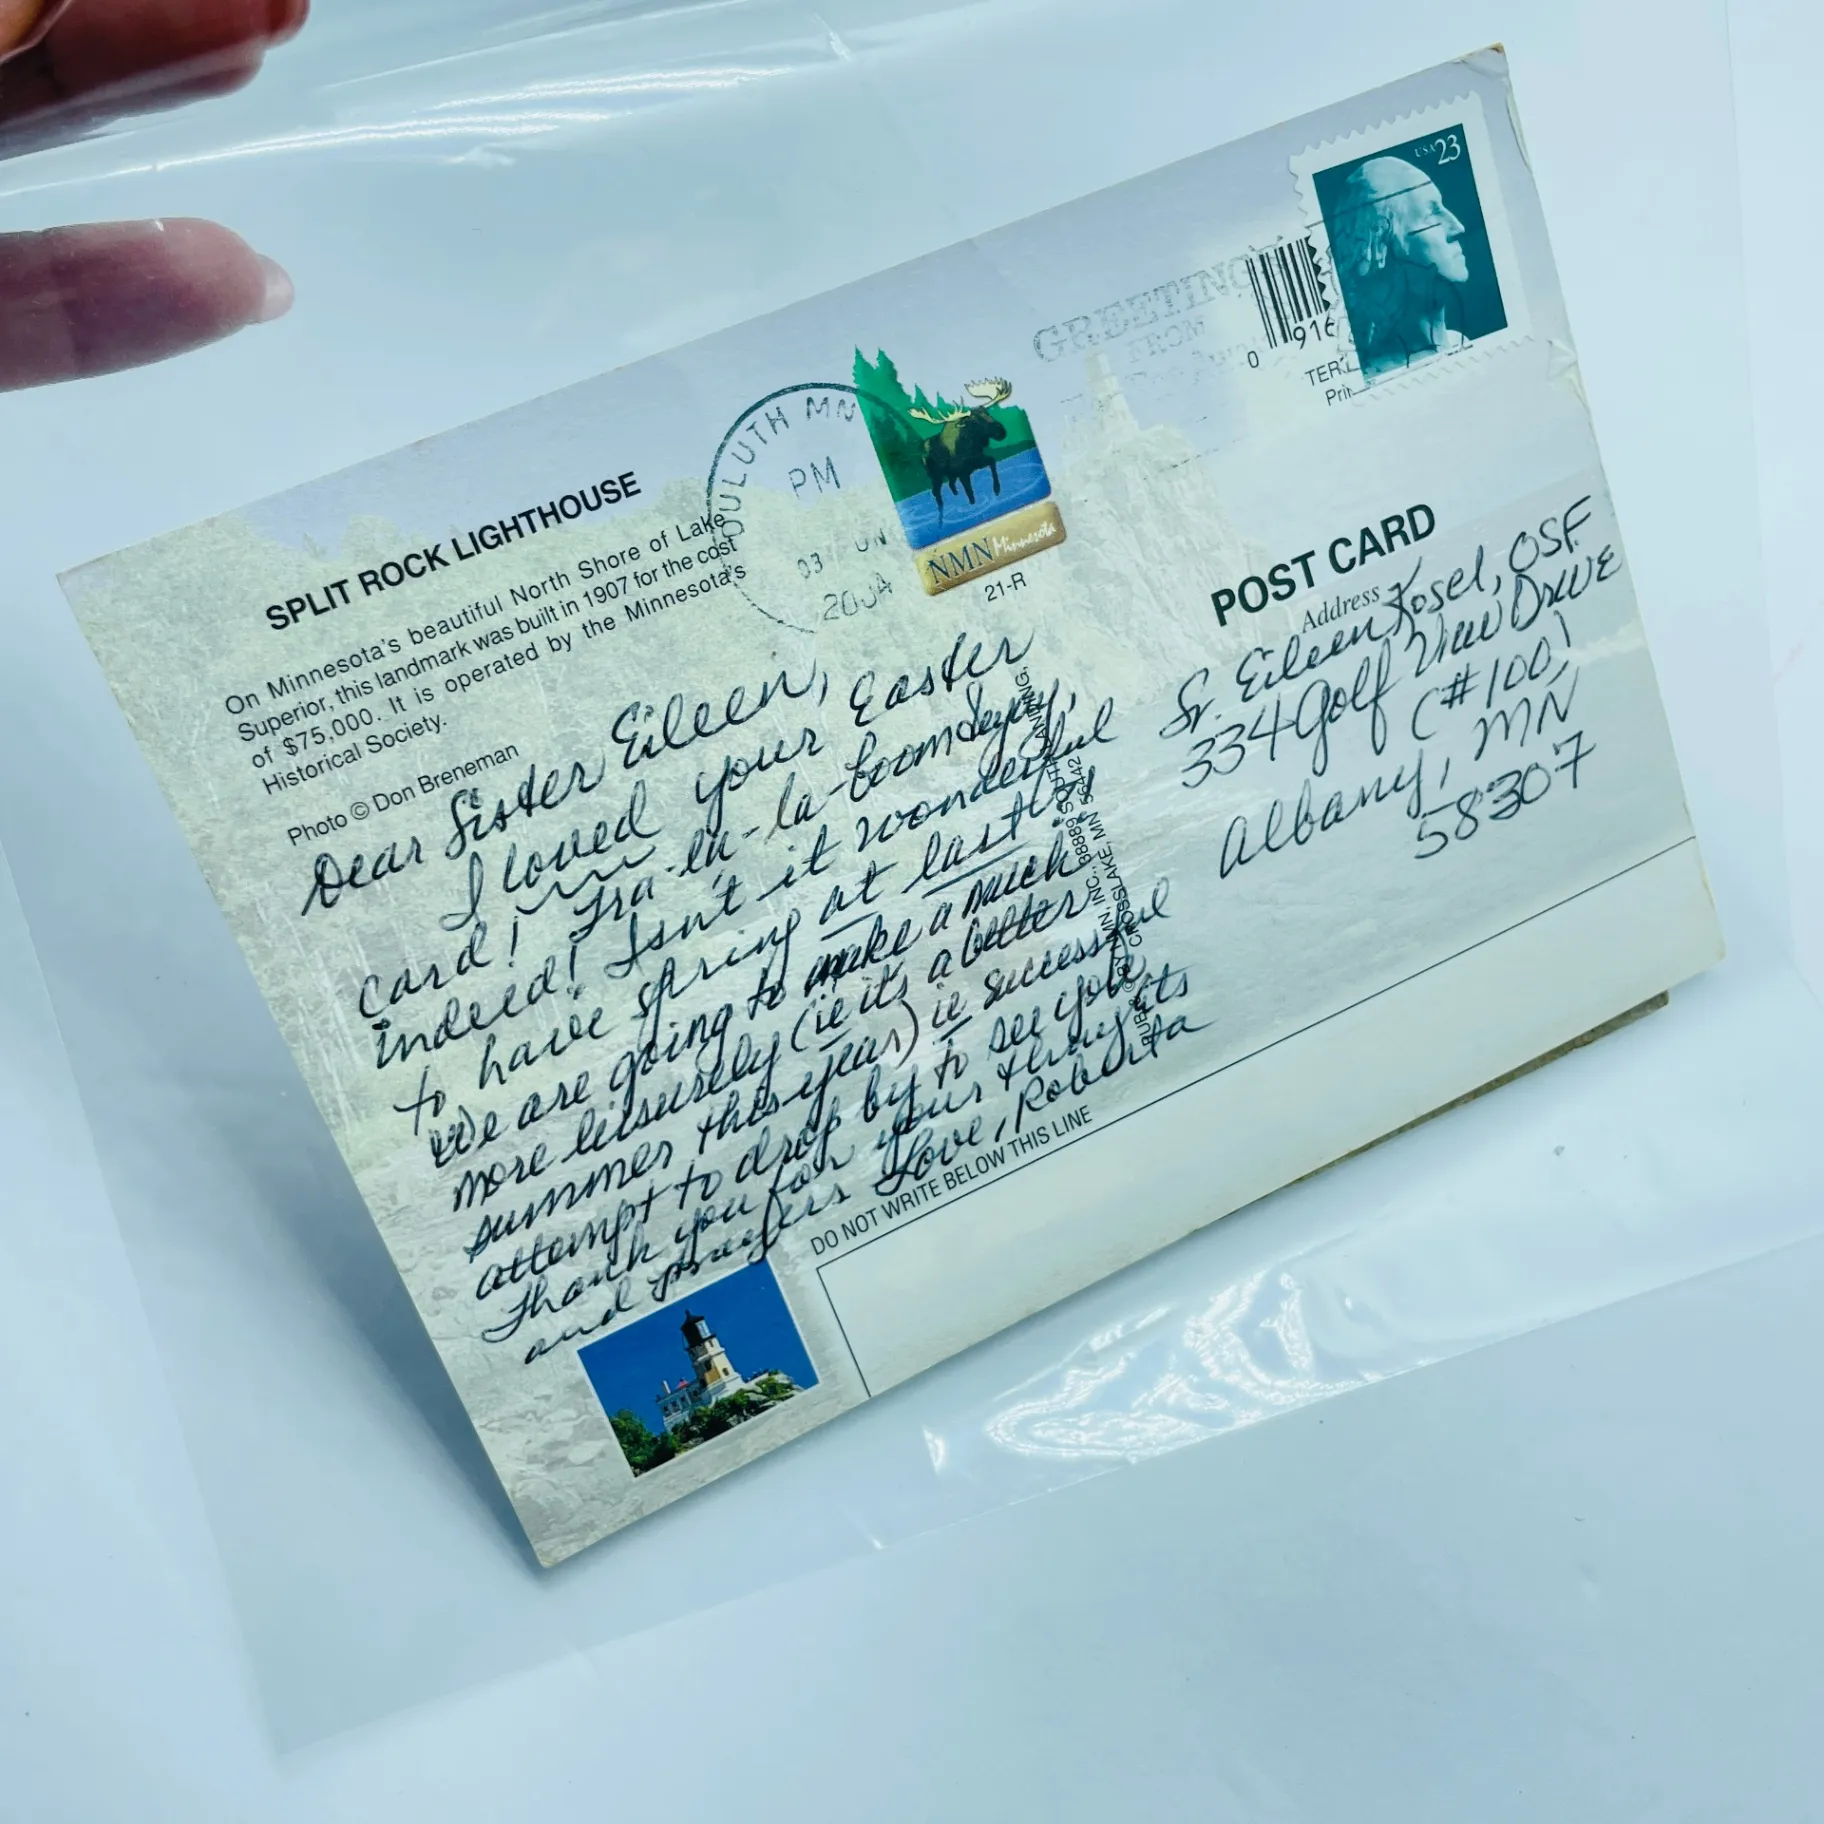 SPLIT ROCK LIGHTHOUSE
On Minnesota's beautiful North Shore of Lake
Superior, this landmark was built in 1907 for the cost
of $75,000. It is operated by the Minnesota's
Historical Society.
Photo © Don Breneman
DULUTH MN
PM
03
2004
NMN Minnesota
21-R
GREETINGS
FROM
USA 23
0 916
POST CARD
Address
Sr. Eileen Kosel, OSF
334 Golf View Drive
(#100)
Albany, MN
58307
Dear Sister Eileen,
I loved your Easter
card! Tra-la-la-boomdeyay,
indeed! Isn't it wonderful
to have spring at last
We are going to make a much
more leisurely (ie it's a better
summer this year) ie successful
attempt to drop by to see you
Thank you for your thoughts
and prayers Love, Roberta
CROSSLAKE, MN 56442
DO NOT WRITE BELOW THIS LINE